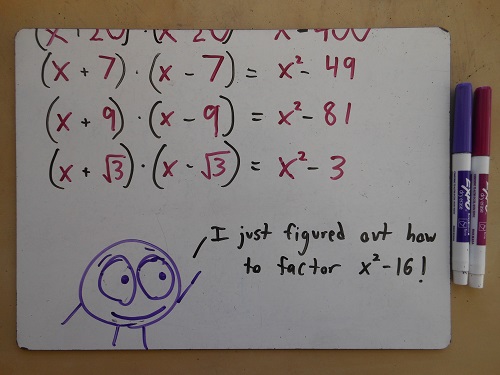 (x + 20) · (x - 20) = x² - 400
(x + 7) · (x - 7) = x² - 49
(x + 9) · (x - 9) = x² - 81
(x + √3) · (x - √3) = x² - 3
I just figured out how
to factor x² - 16!
EXPO
EXPO